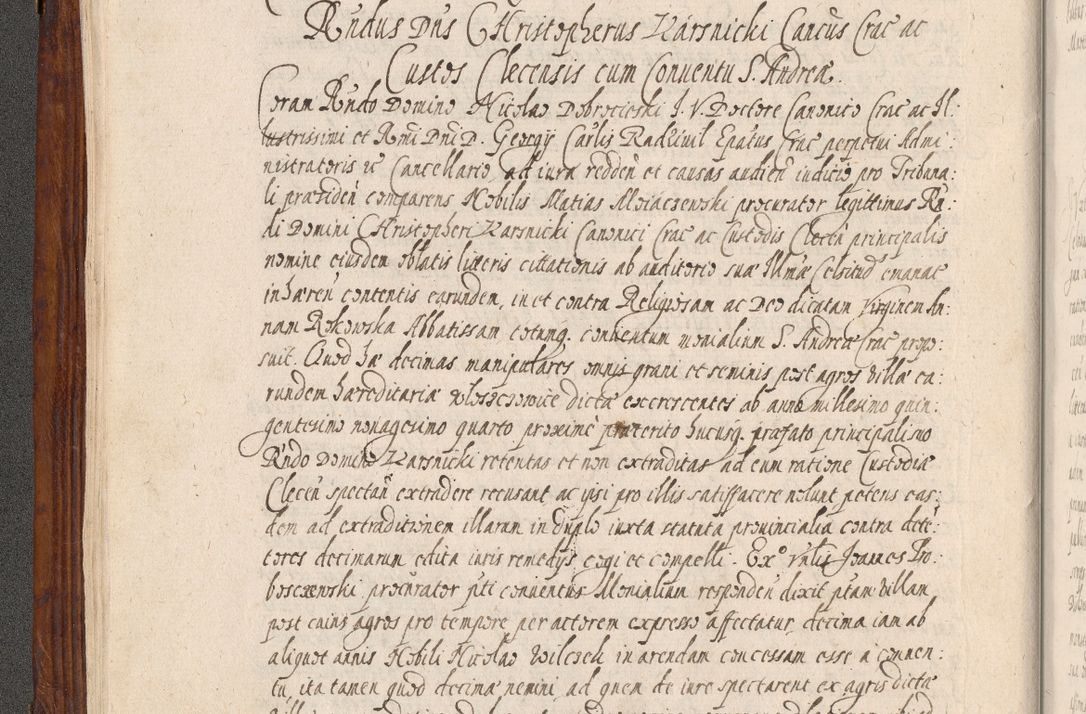 Rndus Dns CHristopherus Karsnicki Cancus Crac ac
Custos Clecensis cum Conuentu S. Andreæ.
Coram Rndo Domino Nicolao Dobrocieski I. V. Doctore Canonico Crac ac Il:
lustrissimi et Rmi Dni D. Georgij Carlis Radziuil Epatus Crac perpetui Admi:
nistratoris ic Cancellario ad iura redden et causas audien iudicio pro Tribuna:
li præsiden comparens Nobilis Matias Moiaczewski procurator legittimus Rn:
di Domini CHristopheri Karsnicki Canonici Crac ac Custodis Clecen principalis
nomine eiusdem oblatis litteris cittationis ab auditorio suæ Illmæ Celsitud emanat
inhæren contentis earunden, in et contra Religiosam ac Deo dicatam Virginem An:
nam Rokowska Abbatissam totumq. conuentum monialium S. Andreæ Crac propo:
suit. Quod hæ decimas manipulares omnis grani et seminis post agros villæ ea:
rundem hæreditariæ Wloszczowice dictæ excrescentes ab anno millesimo quin:
gentesimo nonagesimo quarto proximè præterito hucusq. præfato principali suo
Rndo Domino Karsnicki retentas et non extraditas ad eum ratione Custodiæ
Clecen spectan extradere recusant ac ipsi pro illis satisfacere nolunt petens eas:
dem ad extraditionem illarum in duplo iuxta statuta prouincialia contra dete:
tores decimarum edita iuris remedijs cogi et compelli. Exo Vnlis Joannes Pro:
boszczewski procurator pti conuentus Monialium responden dixit ptam villam
post cuius agros pro tempore per actorem expresso affectatur decima iam ab
aliquot annis Nobili Nicolao Wilczek in arendam concessam esse a conuen:
tu, ita tamen quod decimæ nemini, ad quem de iure spectarent ex agris dictæ